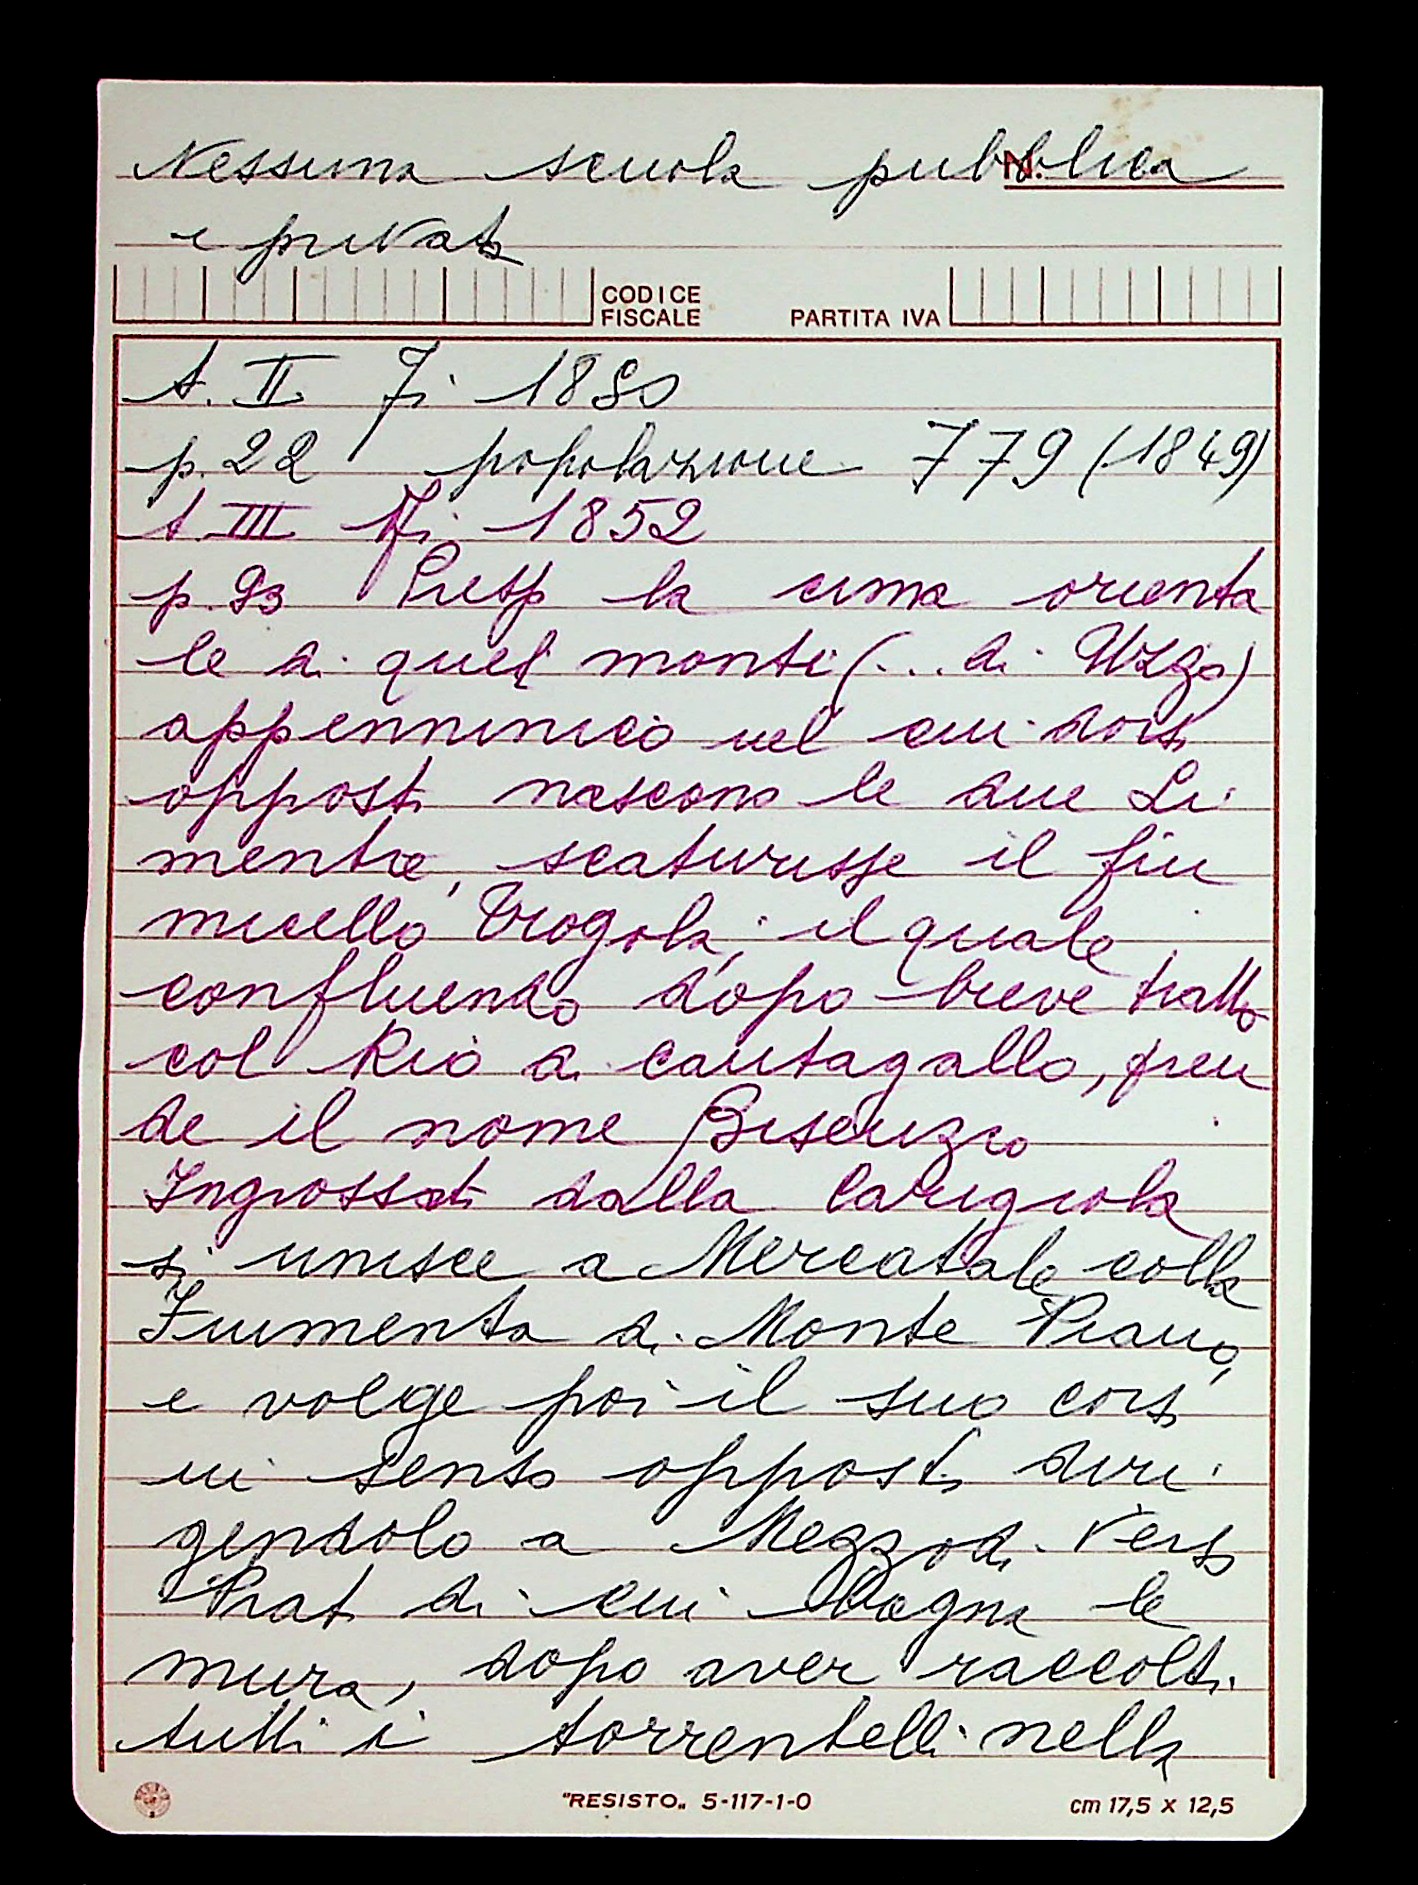 Nessuna scuola pubblica
N.
e privata
CODICE
FISCALE
PARTITA IVA
t. II Fi 1850
p. 22 popolazione 779 (1849)
t. III Fi 1852
p. 93 Presso la cima orienta
le di quel monte (... di Uzzo)
appenninico nel cui dorso
opposto nascono le due Li
mentre, scaturisse il fiu
micello Trogola, il quale
confluendo dopo breve tratto
col Rio di Cantagallo, pren
de il nome Bisenzio
Ingrossato dalla Carigiola
si unisce a Mercatale colla
Fiumenta di Monte Piano,
e volge poi il suo corso
in senso opposto diri
gendolo a Mezzodì. Verso
Prato di cui bagna le
mura, dopo aver raccolti
tutti i torrentelli nella
"RESISTO„ 5-117-1-0
cm 17,5 x 12,5